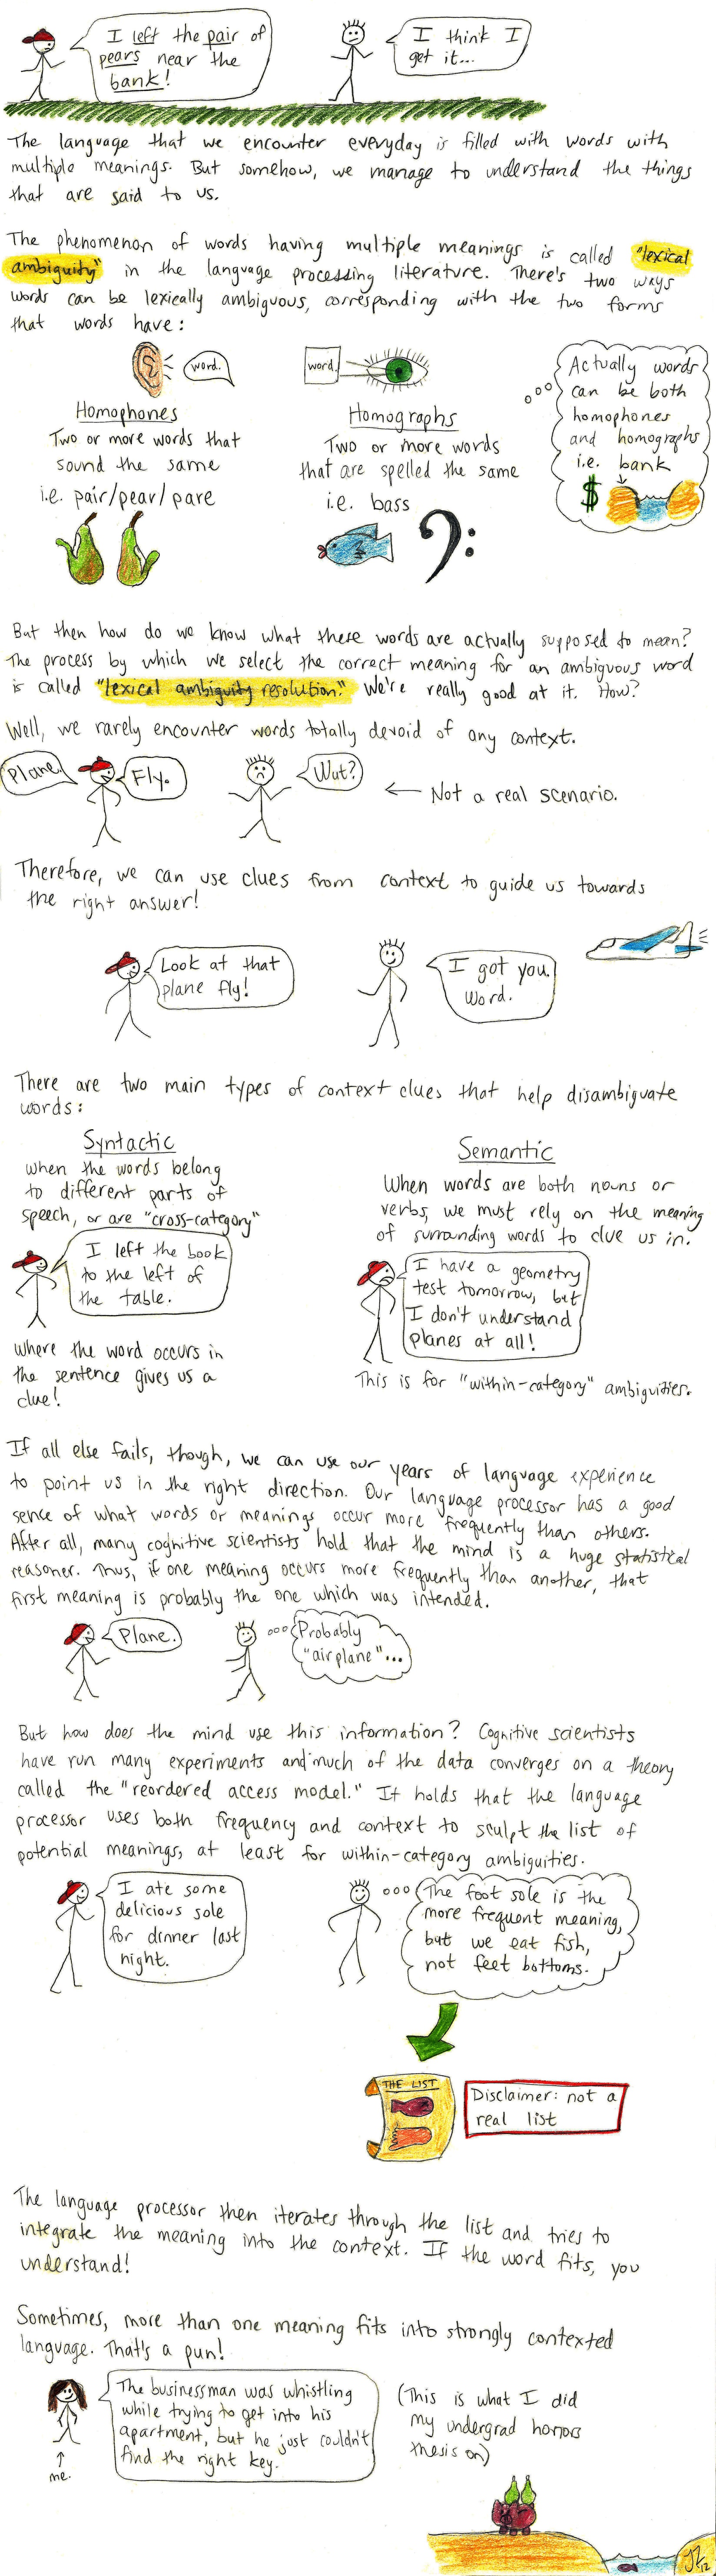 I left the pair of
pears near the
bank!
I think I
get it...
The language that we encounter everyday is filled with words with
multiple meanings. But somehow, we manage to understand the things
that are said to us.
The phenomenon of words having multiple meanings is called "lexical
ambiguity" in the language processing literature. There's two ways
words can be lexically ambiguous, corresponding with the two forms
that words have:
word.
word.
Homophones
Two or more words that
sound the same
i.e. pair/pear/pare
Homographs
Two or more words
that are spelled the same
i.e. bass
Actually words
can be both
homophones
and homographs
i.e. bank
$
But then how do we know what these words are actually supposed to mean?
The process by which we select the correct meaning for an ambiguous word
is called "lexical ambiguity resolution." We're really good at it. How?
Well, we rarely encounter words totally devoid of any context.
Plane.
Fly.
Wut?
← Not a real scenario.
Therefore, we can use clues from context to guide us towards
the right answer!
Look at that
plane fly!
I got you.
Word.
There are two main types of context clues that help disambiguate
words:
Syntactic
When the words belong
to different parts of
speech, or are "cross-category"
I left the book
to the left of
the table.
Where the word occurs in
the sentence gives us a
clue!
Semantic
When words are both nouns or
verbs, we must rely on the meaning
of surrounding words to clue us in.
I have a geometry
test tomorrow, but
I don't understand
planes at all!
This is for "within-category" ambiguities.
If all else fails, though, we can use our years of language experience
to point us in the right direction. Our language processor has a good
sense of what words or meanings occur more frequently than others.
After all, many cognitive scientists hold that the mind is a huge statistical
reasoner. Thus, if one meaning occurs more frequently than another, that
first meaning is probably the one which was intended.
Plane.
Probably
"airplane"...
But how does the mind use this information? Cognitive scientists
have run many experiments and much of the data converges on a theory
called the "reordered access model." It holds that the language
processor uses both frequency and context to sculpt the list of
potential meanings, at least for within-category ambiguities.
I ate some
delicious sole
for dinner last
night.
The foot sole is the
more frequent meaning,
but we eat fish,
not feet bottoms.
THE LIST
Disclaimer: not a
real list
The language processor then iterates through the list and tries to
integrate the meaning into the context. If the word fits, you
understand!
Sometimes, more than one meaning fits into strongly contexted
language. That's a pun!
The businessman was whistling
while trying to get into his
apartment, but he just couldn't
find the right key.
↑
me.
(This is what I did
my undergrad honors
thesis on)